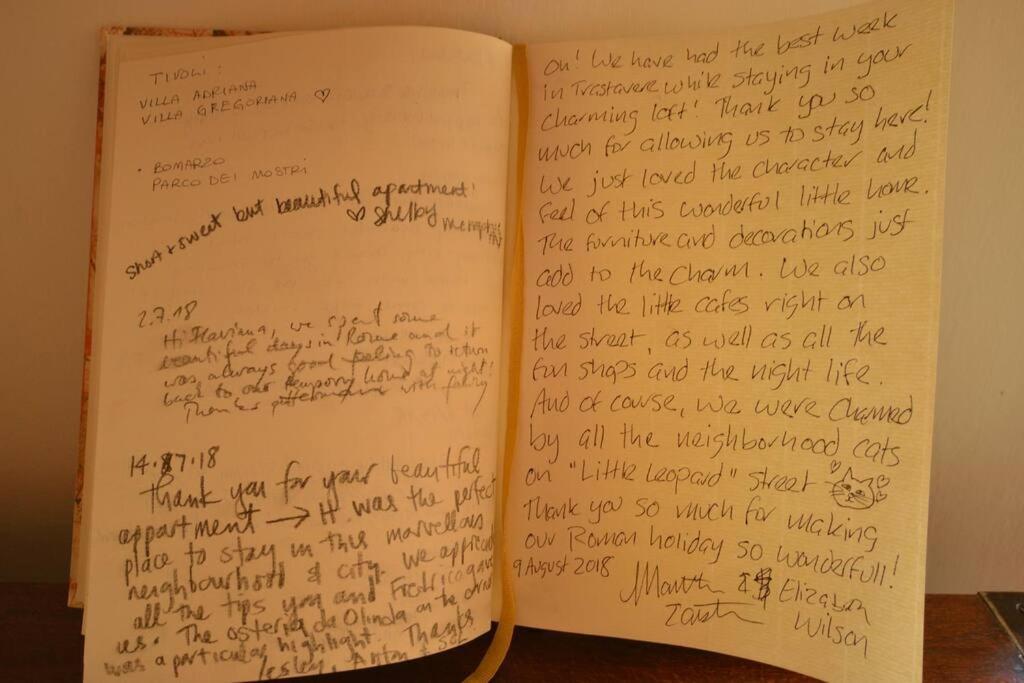 TIVOLI:
VILLA ADRIANA
VILLA GREGORIANA ♡
• BOMARZO
PARCO DEI MOSTRI
Short + sweet but beautiful apartment!
♡ Shelby
2.7.18
Hi Flaviana, we spent some
beautiful days in Rome and it
was always good feeling to return
back to our temporary home at night!
14.7.18
Thank you for your beautiful
appartment → It was the perfect
place to stay in this marvellous
neighbourhood & city. We
all the tips you and gave
us. The osteria da Olinda on the
was a particular highlight. Thanks
Lesley, Anton &
Oh! We have had the best week
in Trastavere while staying in your
charming loft! Thank you so
much for allowing us to stay here!
We just loved the character and
feel of this wonderful little home.
The furniture and decorations just
add to the charm. We also
loved the little cafes right on
the street, as well as all the
fun shops and the night life.
And of course, we were charmed
by all the neighborhood cats
on "Little Leopard" street
Thank you so much for making
our Roman holiday so wonderfull!
9 August 2018
Elizabeth
Wilson